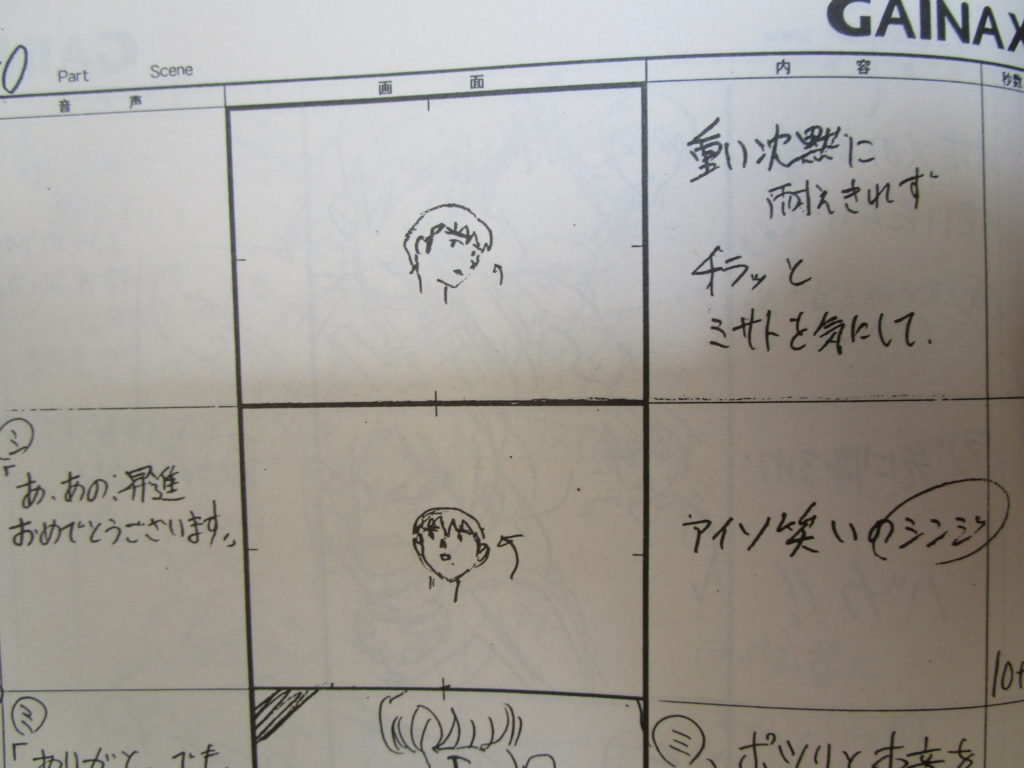 GAINAX
Part Scene
音声 画面 内容 秒数
重い沈黙に
耐えきれず
チラッと
ミサトを気にして.
シ
「あ、あの、昇進
おめでとうございます。」
アイソ笑いのシンジ
10+
ミ
「ありがと、でも
ミ、ポツリとお茶を